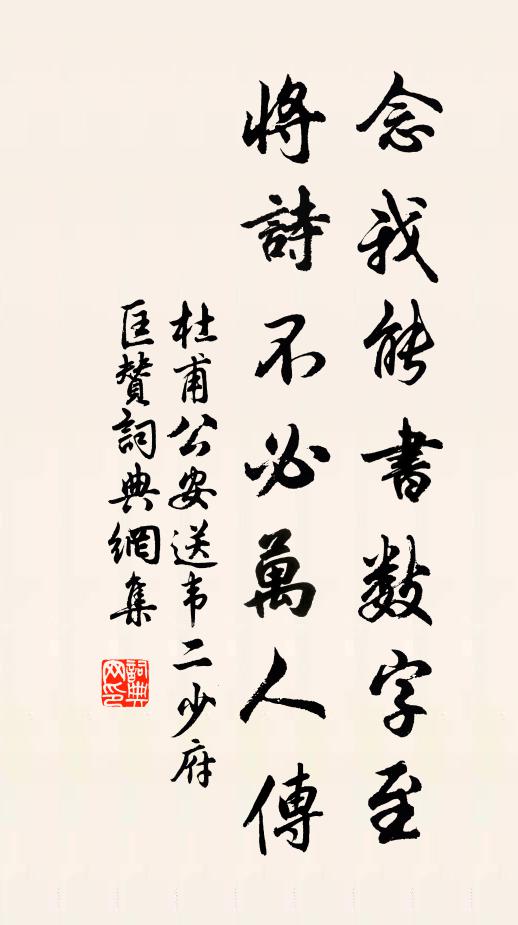 念我能書數字至
將詩不必萬人傳
杜甫公安送韦二少府
匡贊詞典網集
詞典网印